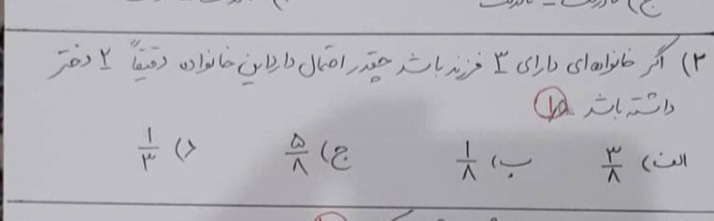 ۲) اگر خانواده‌ای دارای ۳ فرزند باشد چقدر احتمال دارد این خانواده دقیقاً ۲ دختر
داشته باشد
الف) ۳/۸ ب) ۱/۸ ج) ۵/۸ د) ۱/۳